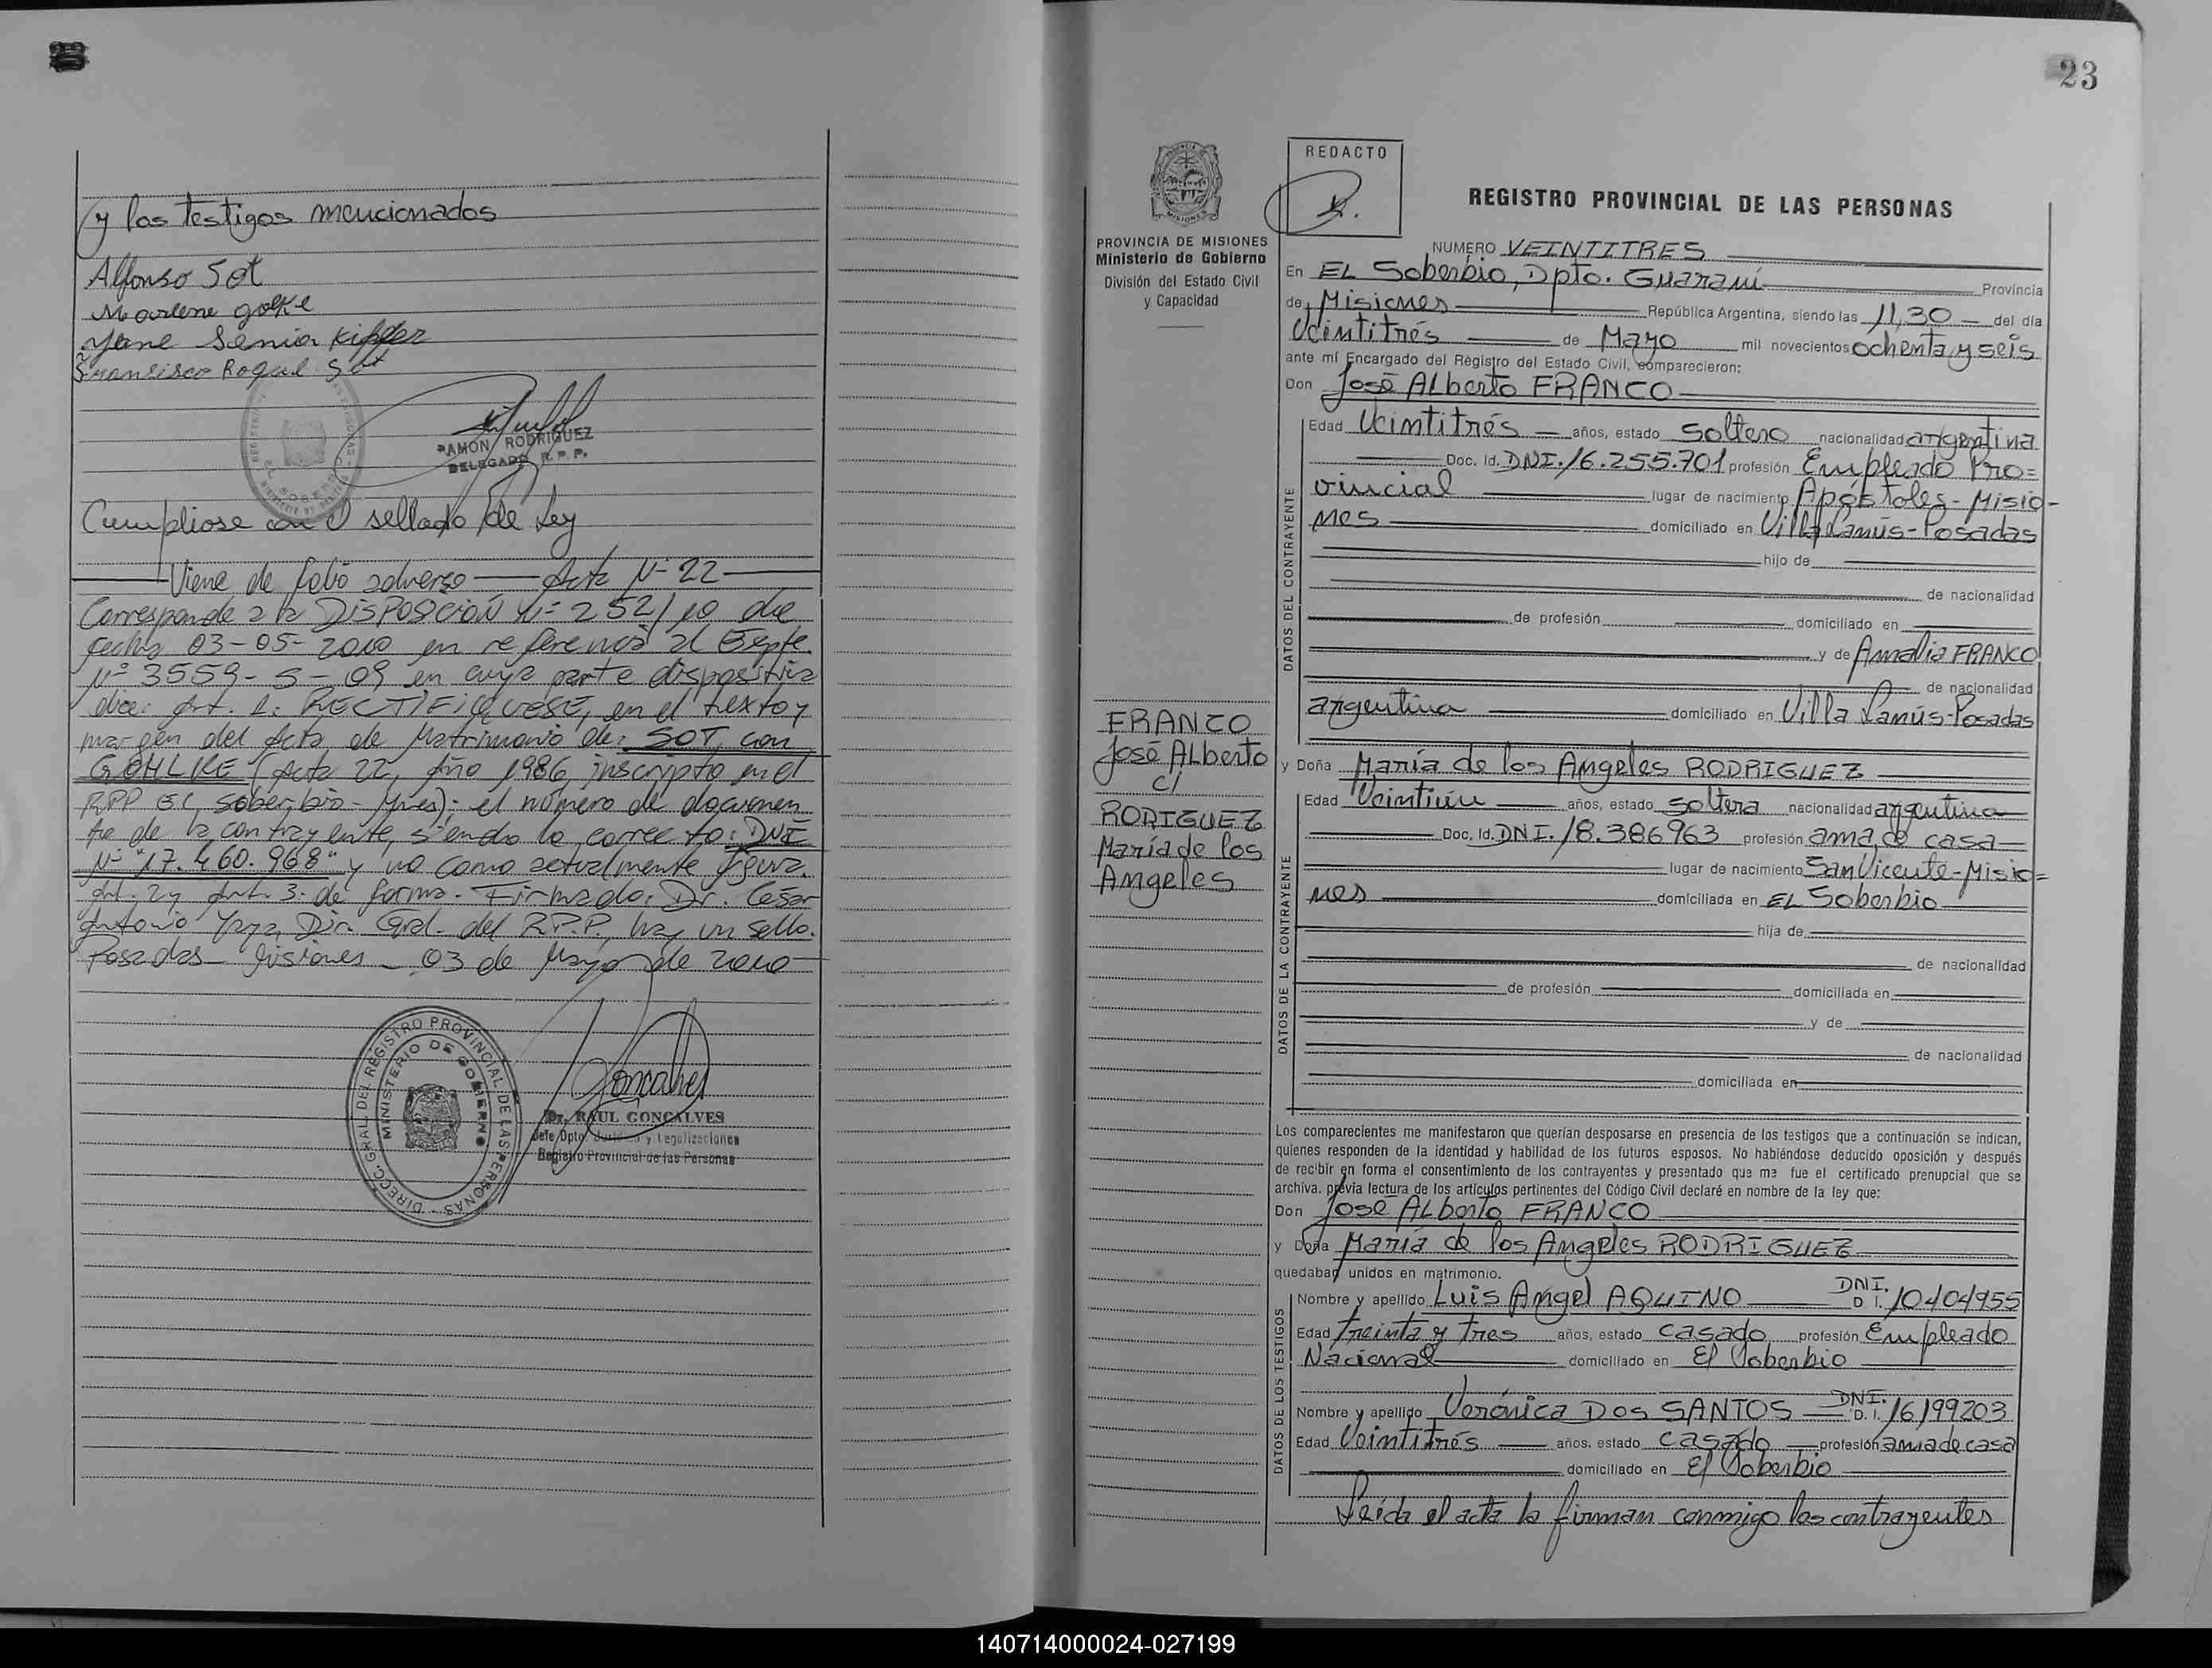 y los testigos mencionados
Alfonso Sot
Marlene golke
Francisco Roque Sot
RAMON RODRIGUEZ
DELEGADO R.P.P.
Cumpliose con el sellado de Ley
Viene de folio adverso — Acta Nº 22
Corresponde a la DISPOSICIÓN Nº 252/10 de
fecha 03-05-2010 en referencia al Expte.
Nº 3559-S-09 en cuya parte dispositiva
dice: Art. 1: RECTIFIQUESE, en el texto y
margen del Acta de Matrimonio de: SOT, con
GOHLKE (Acta 22, Año 1986, inscripto en el
RPP El Soberbio - Mnes); el número de documen
to de la contrayente, siendo lo correcto: DNI
Nº "17.460.968" y no como actualmente figura.
Art. 2 y Art. 3: de forma. Firmado: Dr. César
Antonio Dir. Gral. del R.P.P., hay un sello.
Posadas Misiones 03 de Mayo de 2010
DIRECC. GRAL. DEL REGISTRO PROVINCIAL DE LAS PERSONAS
MINISTERIO DE GOBIERNO
Dr. RAUL GONCALVES
Jefe Dpto. Jurídico y Legalizaciones
Registro Provincial de las Personas
23
REDACTO
REGISTRO PROVINCIAL DE LAS PERSONAS
PROVINCIA DE MISIONES
Ministerio de Gobierno
División del Estado Civil
y Capacidad
NUMERO VEINTITRES
En EL Soberbio, Dpto. Guaraní Provincia
de Misiones República Argentina, siendo las 11,30 del día
Veintitrés de Mayo mil novecientos ochenta y seis
ante mí Encargado del Registro del Estado Civil, comparecieron:
Don José Alberto FRANCO
DATOS DEL CONTRAYENTE
Edad Veintitrés años, estado Soltero nacionalidad argentina
Doc. Id. DNI. 16.255.701 profesión Empleado Pro=
vincial lugar de nacimiento Apóstoles-Misio-
nes domiciliado en Villa Lanús-Posadas
hijo de
de nacionalidad
de profesión domiciliado en
y de Amalia FRANCO
de nacionalidad
argentina domiciliado en Villa Lanús-Posadas
FRANCO
José ALberto
c/
RODIGUEZ
María de los
Angeles
y Doña María de los Angeles RODRIGUEZ
DATOS DE LA CONTRAYENTE
Edad Veintiún años, estado soltera nacionalidad argentina
Doc. Id. DNI. 18.386963 profesión ama de casa
lugar de nacimiento San Vicente-Misio=
nes domiciliada en EL Soberbio
hija de
de nacionalidad
de profesión domiciliada en
y de
de nacionalidad
domiciliada en
Los comparecientes me manifestaron que querían desposarse en presencia de los testigos que a continuación se indican,
quienes responden de la identidad y habilidad de los futuros esposos. No habiéndose deducido oposición y después
de recibir en forma el consentimiento de los contrayentes y presentado que me fue el certificado prenupcial que se
archiva. previa lectura de los artículos pertinentes del Código Civil declaré en nombre de la ley que:
Don José ALberto FRANCO
y Doña María de los Angeles RODRIGUEZ
quedaban unidos en matrimonio.
DATOS DE LOS TESTIGOS
Nombre y apellido Luis Angel AQUINO DNI. D. I. 10404955
Edad Treinta y tres años, estado casado profesión Empleado
Nacional domiciliado en El Soberbio
Nombre y apellido Verónica Dos SANTOS DNI. D. I. 16199203
Edad Veintitrés años. estado casado profesión ama de casa
domiciliado en El Soberbio
Leída el acta la firman conmigo los contrayentes
140714000024-027199